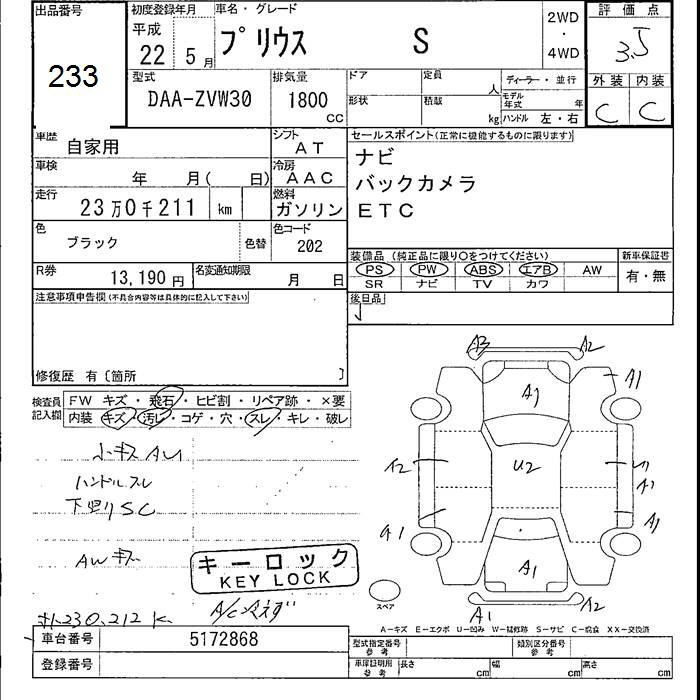 出品番号
233
初度登録年月
平成
22年 5月
車名・グレード
プリウス S
2WD
・
4WD
評価点
3.5
外装 内装
C C
型式
DAA-ZVW30
排気量
1800
CC
ドア
定員
人
形状
積載
kg
ディーラー・並行
モデル年式 年
ハンドル 左・右
車歴
自家用
シフト
AT
車検
年 月( 日)
冷房
AAC
走行
23万0千211 km
燃料
ガソリン
色
ブラック
色替
色コード
202
R券
13,190円
名変通知期限
月 日
セールスポイント(正常に機能するものに限ります)
ナビ
バックカメラ
ETC
装備品 (純正品に限り○をつけてください)
PS PW ABS エアB AW
SR ナビ TV カワ
新車保証書
有・無
後日品
注意事項申告欄(不具合内容等は具体的に記入して下さい)
修復歴 有〔箇所 〕
検査員記入欄
FW キズ・飛石・ヒビ割・リペア跡・×要
内装 キズ・汚レ・コゲ・穴・スレ・キレ・破レ
ハンドルスレ
下廻りSC
AWキズ
キーロック
KEY LOCK
230,212 K
A3 A2
A1
A2
U2
A1
A1
A1
A1
A1 A2
スペア
A-キズ E-エクボ U-凹み W-補修跡 S-サビ C-腐食 XX-交換済
車台番号
5172868
登録番号
型式指定番号
参考
類別区分番号
参考
車庫証明用
参考
長さ cm
幅 cm
高さ cm